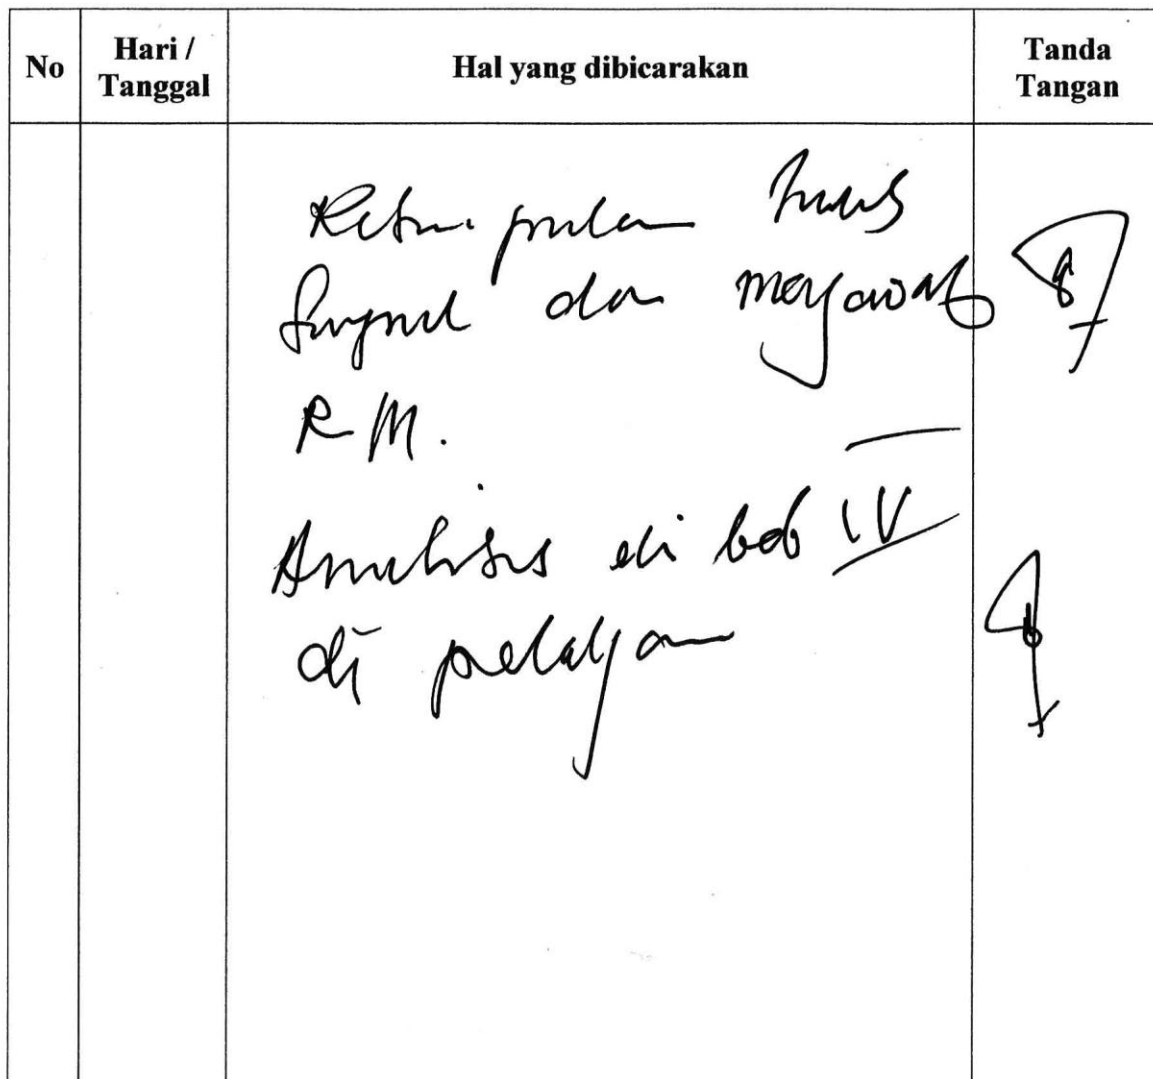 No
Hari / Tanggal
Hal yang dibicarakan
Tanda Tangan
Kesimpulan harus
singkat dan menjawab
RM.
Analisis di bab IV
di pertajam